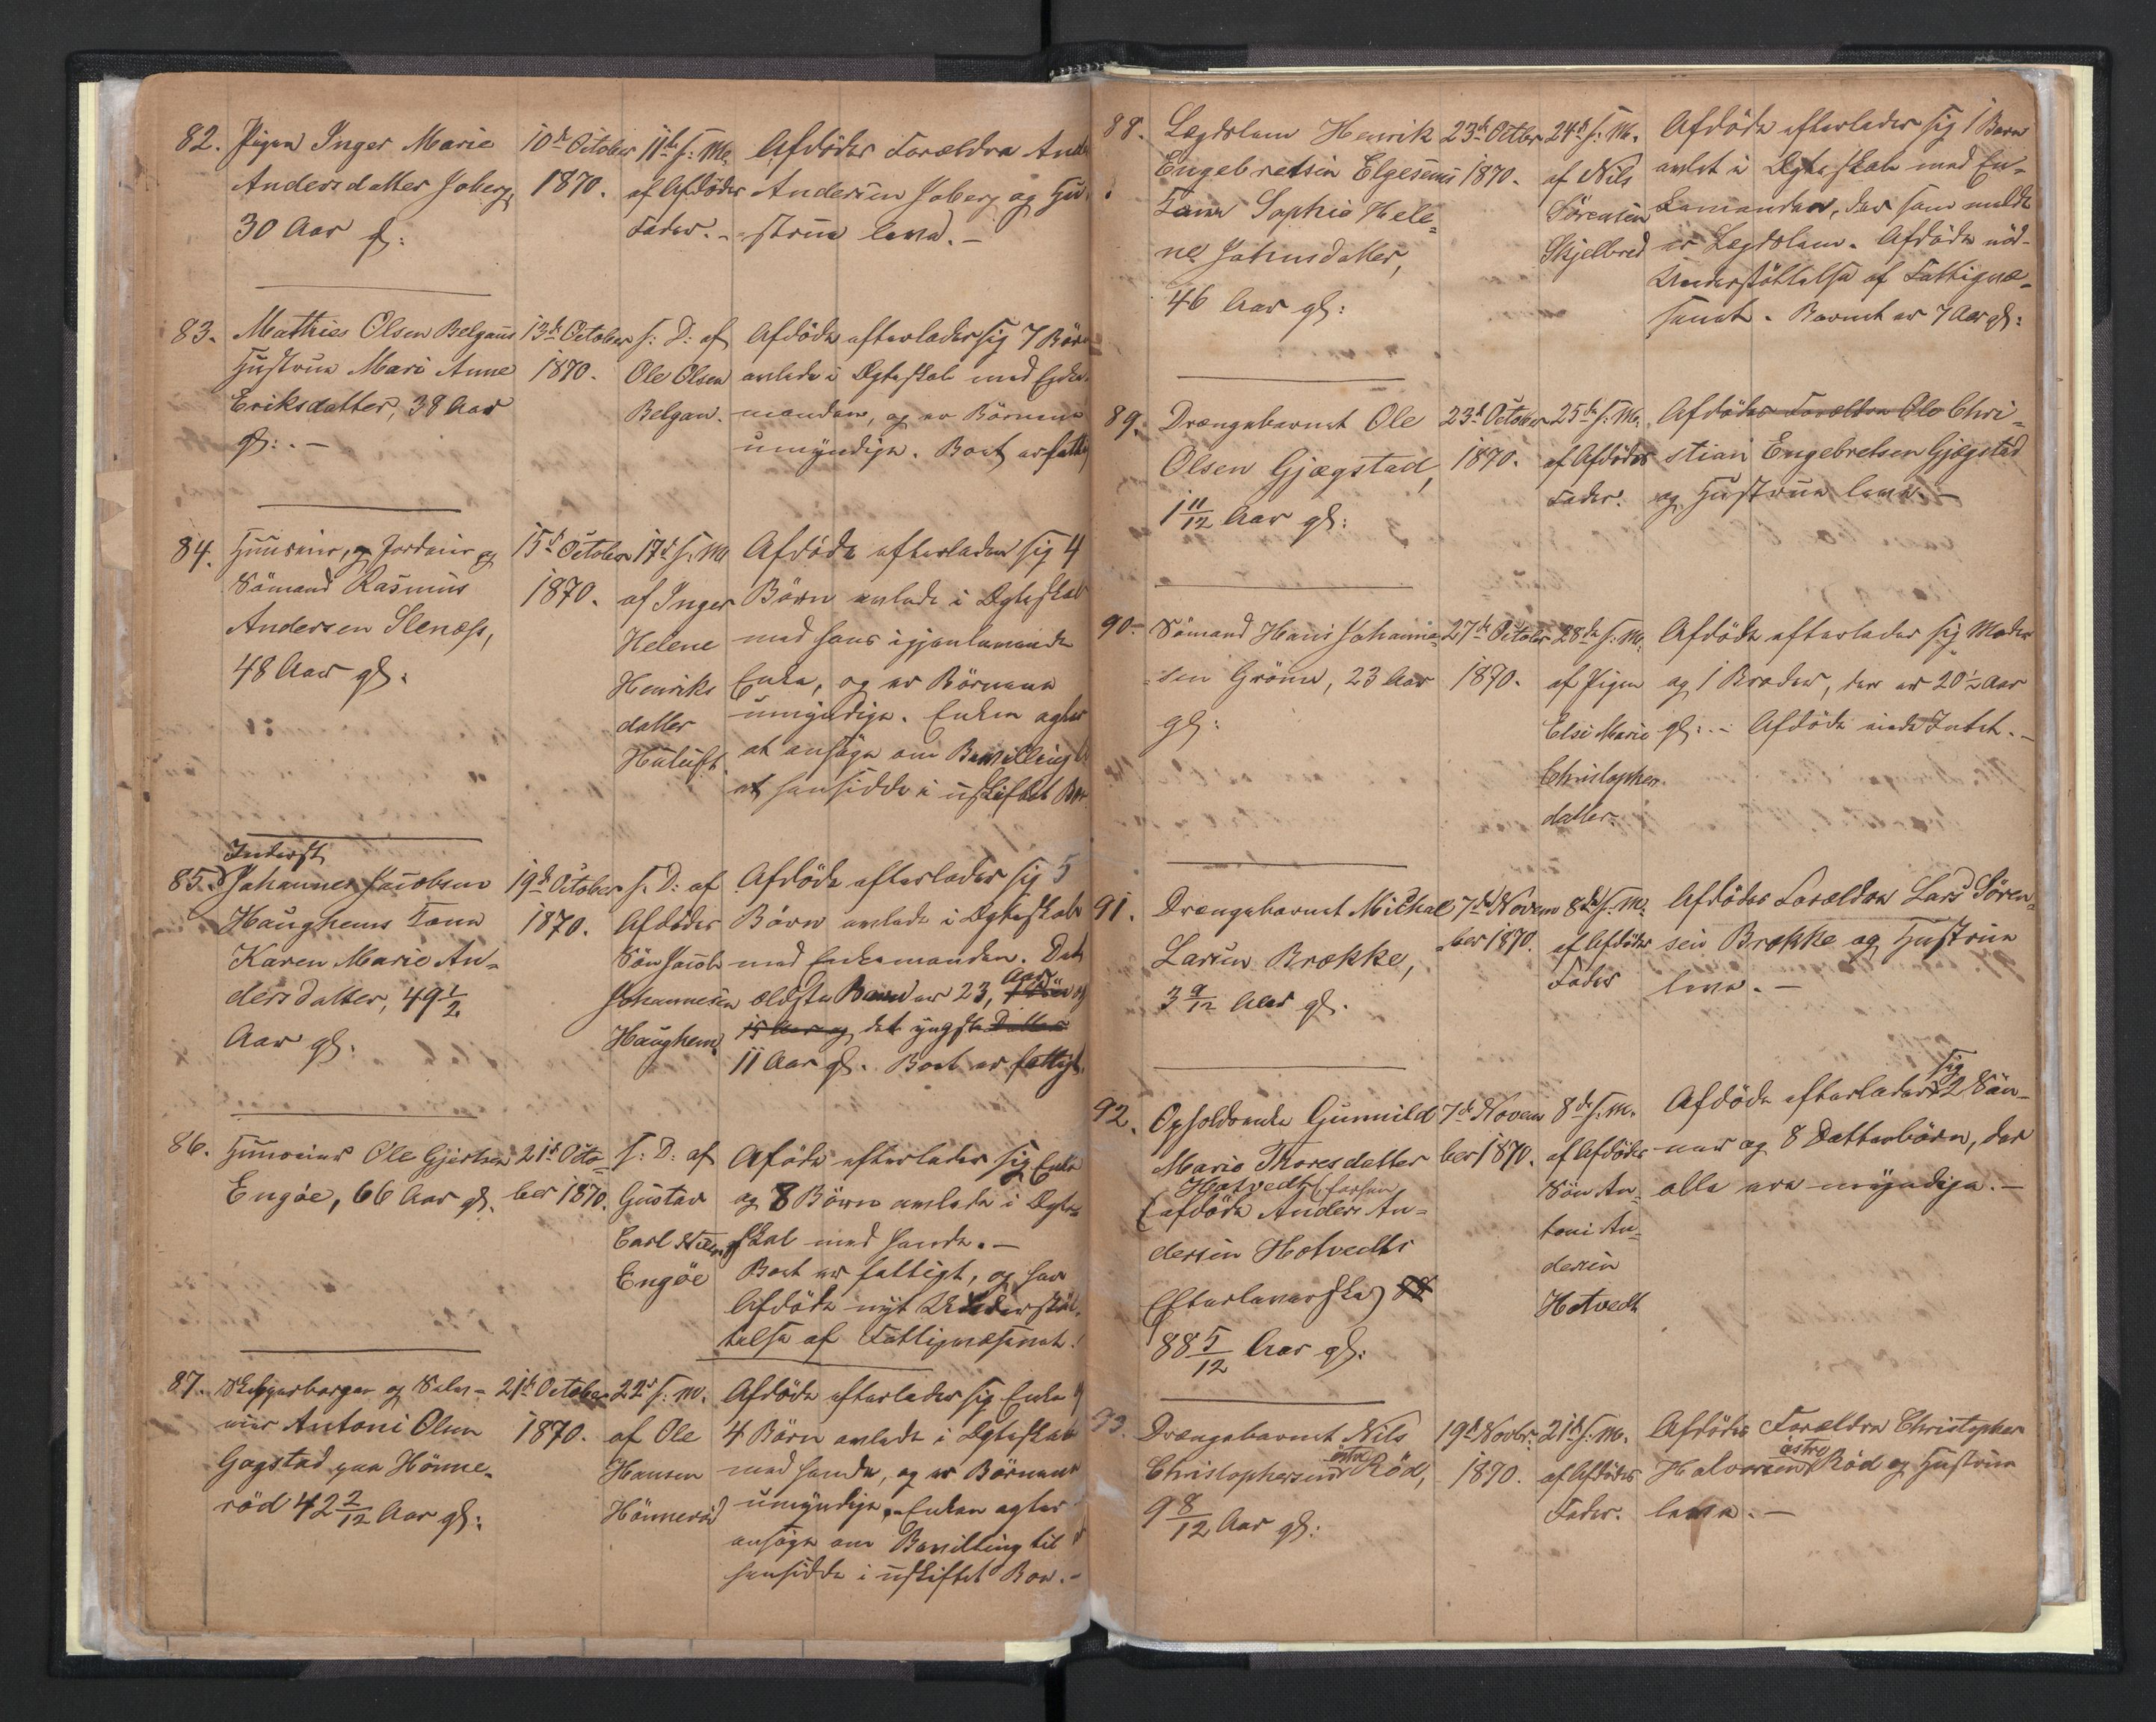 82. Pigen Inger Marie
Andersdatter Joberg,
30 Aar gl:
10de October
1870.
11te s: M.
af Afdødes
Fader. -
Afdødes Forældre And
Andersen Joberg og Hu-
strue leve. -
83. Mathies Olsen Belgaus
Hustrue Mari Anne
Eriksdatter, 38 Aar
gl: . -
13de October
1870.
s: D: af
Ole Olsen
Belgau.
Afdøde efterlader sig 7 Børn
avlede i Ægteskab med Enke-
manden, og er Børnene
umyndige. Boet er fattig
84. Huuseier, og Jordeier og
Sömand Rasmus
Andersen Slenæss,
48 Aar gl.
15de October
1870.
17de s: M
af Inger
Helene
Henriks
datter
Afdøde efterlader sig 4
Børn avlede i Ægteskab
med hans igjenlevende
Enke, og er Børnene
umyndige. Enken agter
at ansøge om Bevilling t
at hensidde i uskiftet Boe
85. Inderst
Johannes Jacobsen
Haughems Kone
Karen Marie An-
dersdatter, 49 1/2
Aar gl.
19de October
1870.
s: D: af
Afdødes
Søn Jacob
Johannesen
Haughem.
Afdøde efterlader sig 5
Børn avlede i Ægteskab
med Enkemanden. Det
ældste Barn er 23, Aar og
15 Aar og det yngste Datter
11 Aar gl. Boet er fattigt.
86. Huuseier Ole Gjertsen
Engöe, 66 Aar gl.
21de Octo-
ber 1870.
s: D: af
Gustav
Carl
Engöe
Afdøde efterlader sig Enke
og 8 Børn avlede i Ægte-
skab med hende. -
Boet er fattigt, og har
Afdøde nydt Understøt-
telse af Fattigvæsenet.
87. Skipperborger og Selv-
eier Antoni Olsen
Gogstad paa Hönne-
röd 42 2/12 Aar gl:
21de October
1870.
22de s: M.
af Ole
Hansen
Hönneröd
Afdøde efterlader sig Enke og
4 Børn avlede i Ægteskab
med hende, og er Børnene
umyndige. Enken agter
ansøge om Bevilling til
hensidde i uskiftet Boe. -
88. Lægdslem Henrik
Engebretsen Elgesems
Kone Sophie Hele-
ne Johnsdatter,
46 Aar gl:
23de Octbr
1870.
24de s: M.
af Nils
Sörensen
Skjelbred
Afdøde efterlader sig 1 Barn
avlet i Ægteskab med En-
kemanden, der som meldt
er Lægdslem. Afdøde nød
Understøttelse af Fattigvæ-
senet. Barnet er 7 Aar gl:
89. Drengebarnet Ole
Olsen Gjægstad,
1 11/12 Aar gl:
23de October
1870.
25de s: M.
af Afdødes
Fader.
Afdødes Forældre Ole Chri-
stian Engebretsen Gjægstad
og Hustrue leve. -
90. Sömand Hans Johanne-
sen Gröm, 23 Aar
gl:
27de October
1870.
28de s: M.
af Pigen
Elsi Marie
Christophers-
datter.
Afdøde efterlader sig Moder
og 1 Broder, der er 20 1/2 Aar
gl: . - Afdøde eiede Intet. -
91. Drengebarnet Michal
Larsen Brække,
3 9/12 Aar gl.
7de Novem
ber 1870.
8de s: M.
af Afdødes
Fader
Afdødes Forældre Lars Sören-
sen Brække og Hustrue
leve. -
92. Opholdsenke Gunnild
Marie Thoresdatter
Hotvedt (forhen
(afdøde Anders An-
dersen Hotvedts
Efterleverske)
88 5/12 Aar gl:
7de Novem
ber 1870.
8de s: M.
af Afdødes
Søn An-
toni An-
dersen
Hotvedt
Afdøde efterlader sig 2 Søn-
ner og 8 Datterbørn, der
alle ere myndige. -
93. Drengebarnet Nils
Christophersen östre Röd,
9 8/12 Aar gl:
19de Novbr.
1870.
21de s: M.
af Afdødes
Fader.
Afdødes Forældre Christopher
Halvorsen östre Röd og Hustrue
leve. -